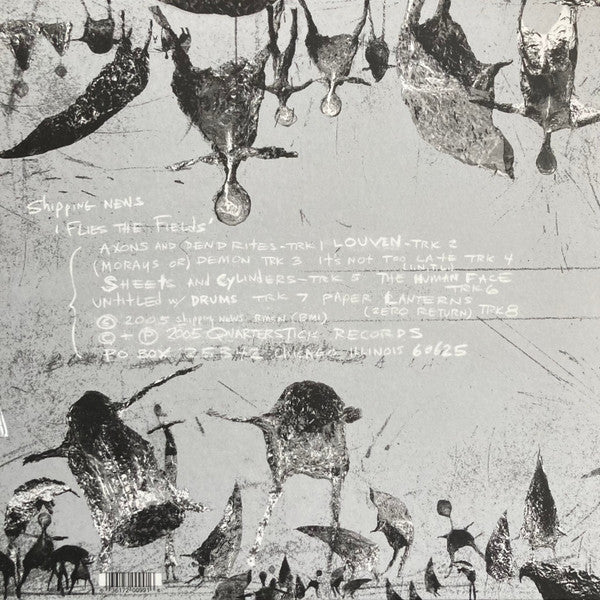 Shipping News
'Flies the Fields'
Axons and Dendrites - Trk 1 Louven - Trk 2
(Morays or) Demon Trk 3 It's Not Too Late Trk 4
Sheets and Cylinders - Trk 5 The Human Face
Trk 6
Untitled w/ Drums Trk 7 Paper Lanterns
(Zero Return) Trk 8
© 2005 Shipping News (BMI)
© + ℗ 2005 Quarterstick Records
PO Box 25342 Chicago, Illinois 60625